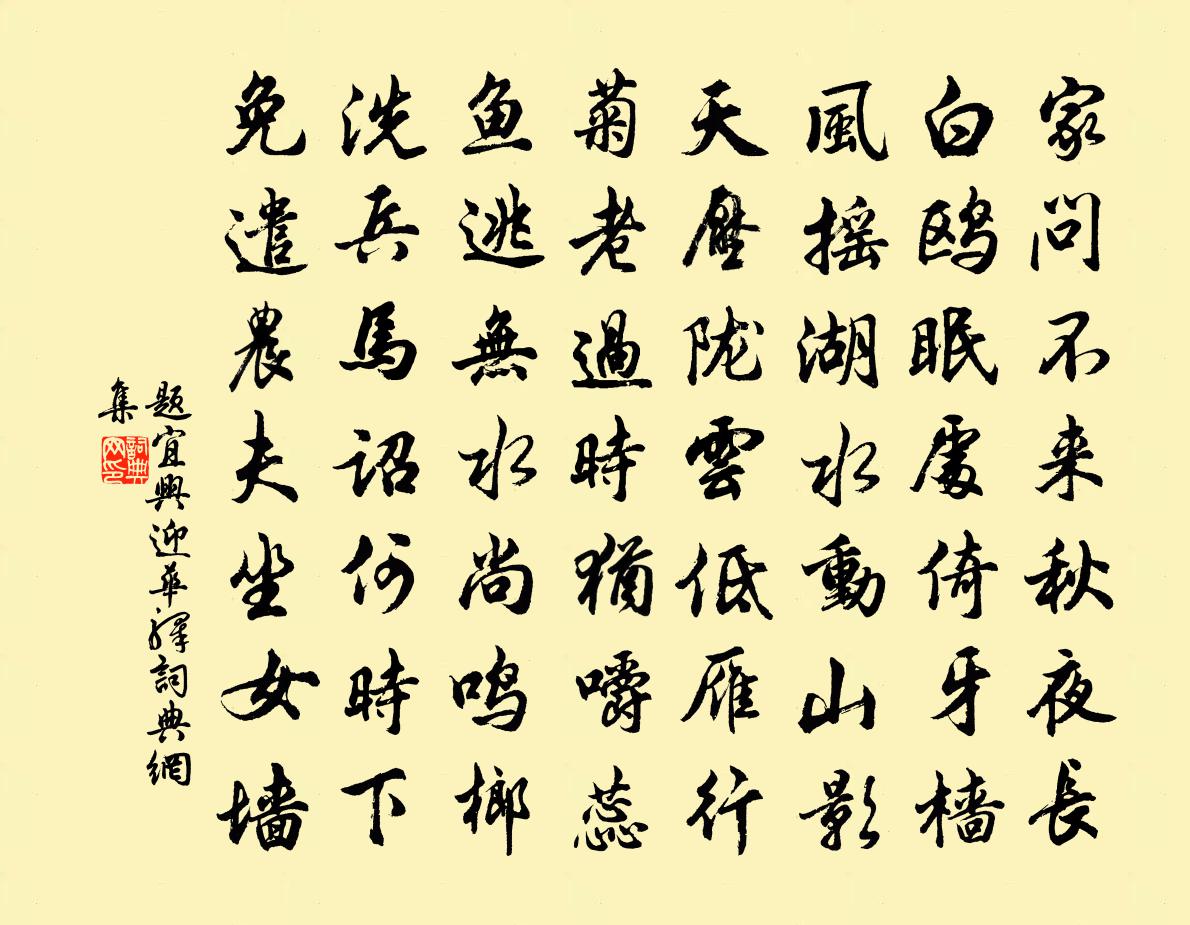 家問不来秋夜長
白鸥眠處倚牙樯
風摇湖水動山影
天壓陇雲低雁行
菊老過時猶嚼蕊
鱼逃無水尚鸣榔
洗兵馬诏何時下
免遣農夫坐女墙
题宜興迎華驛詞典網
集
詞典网印